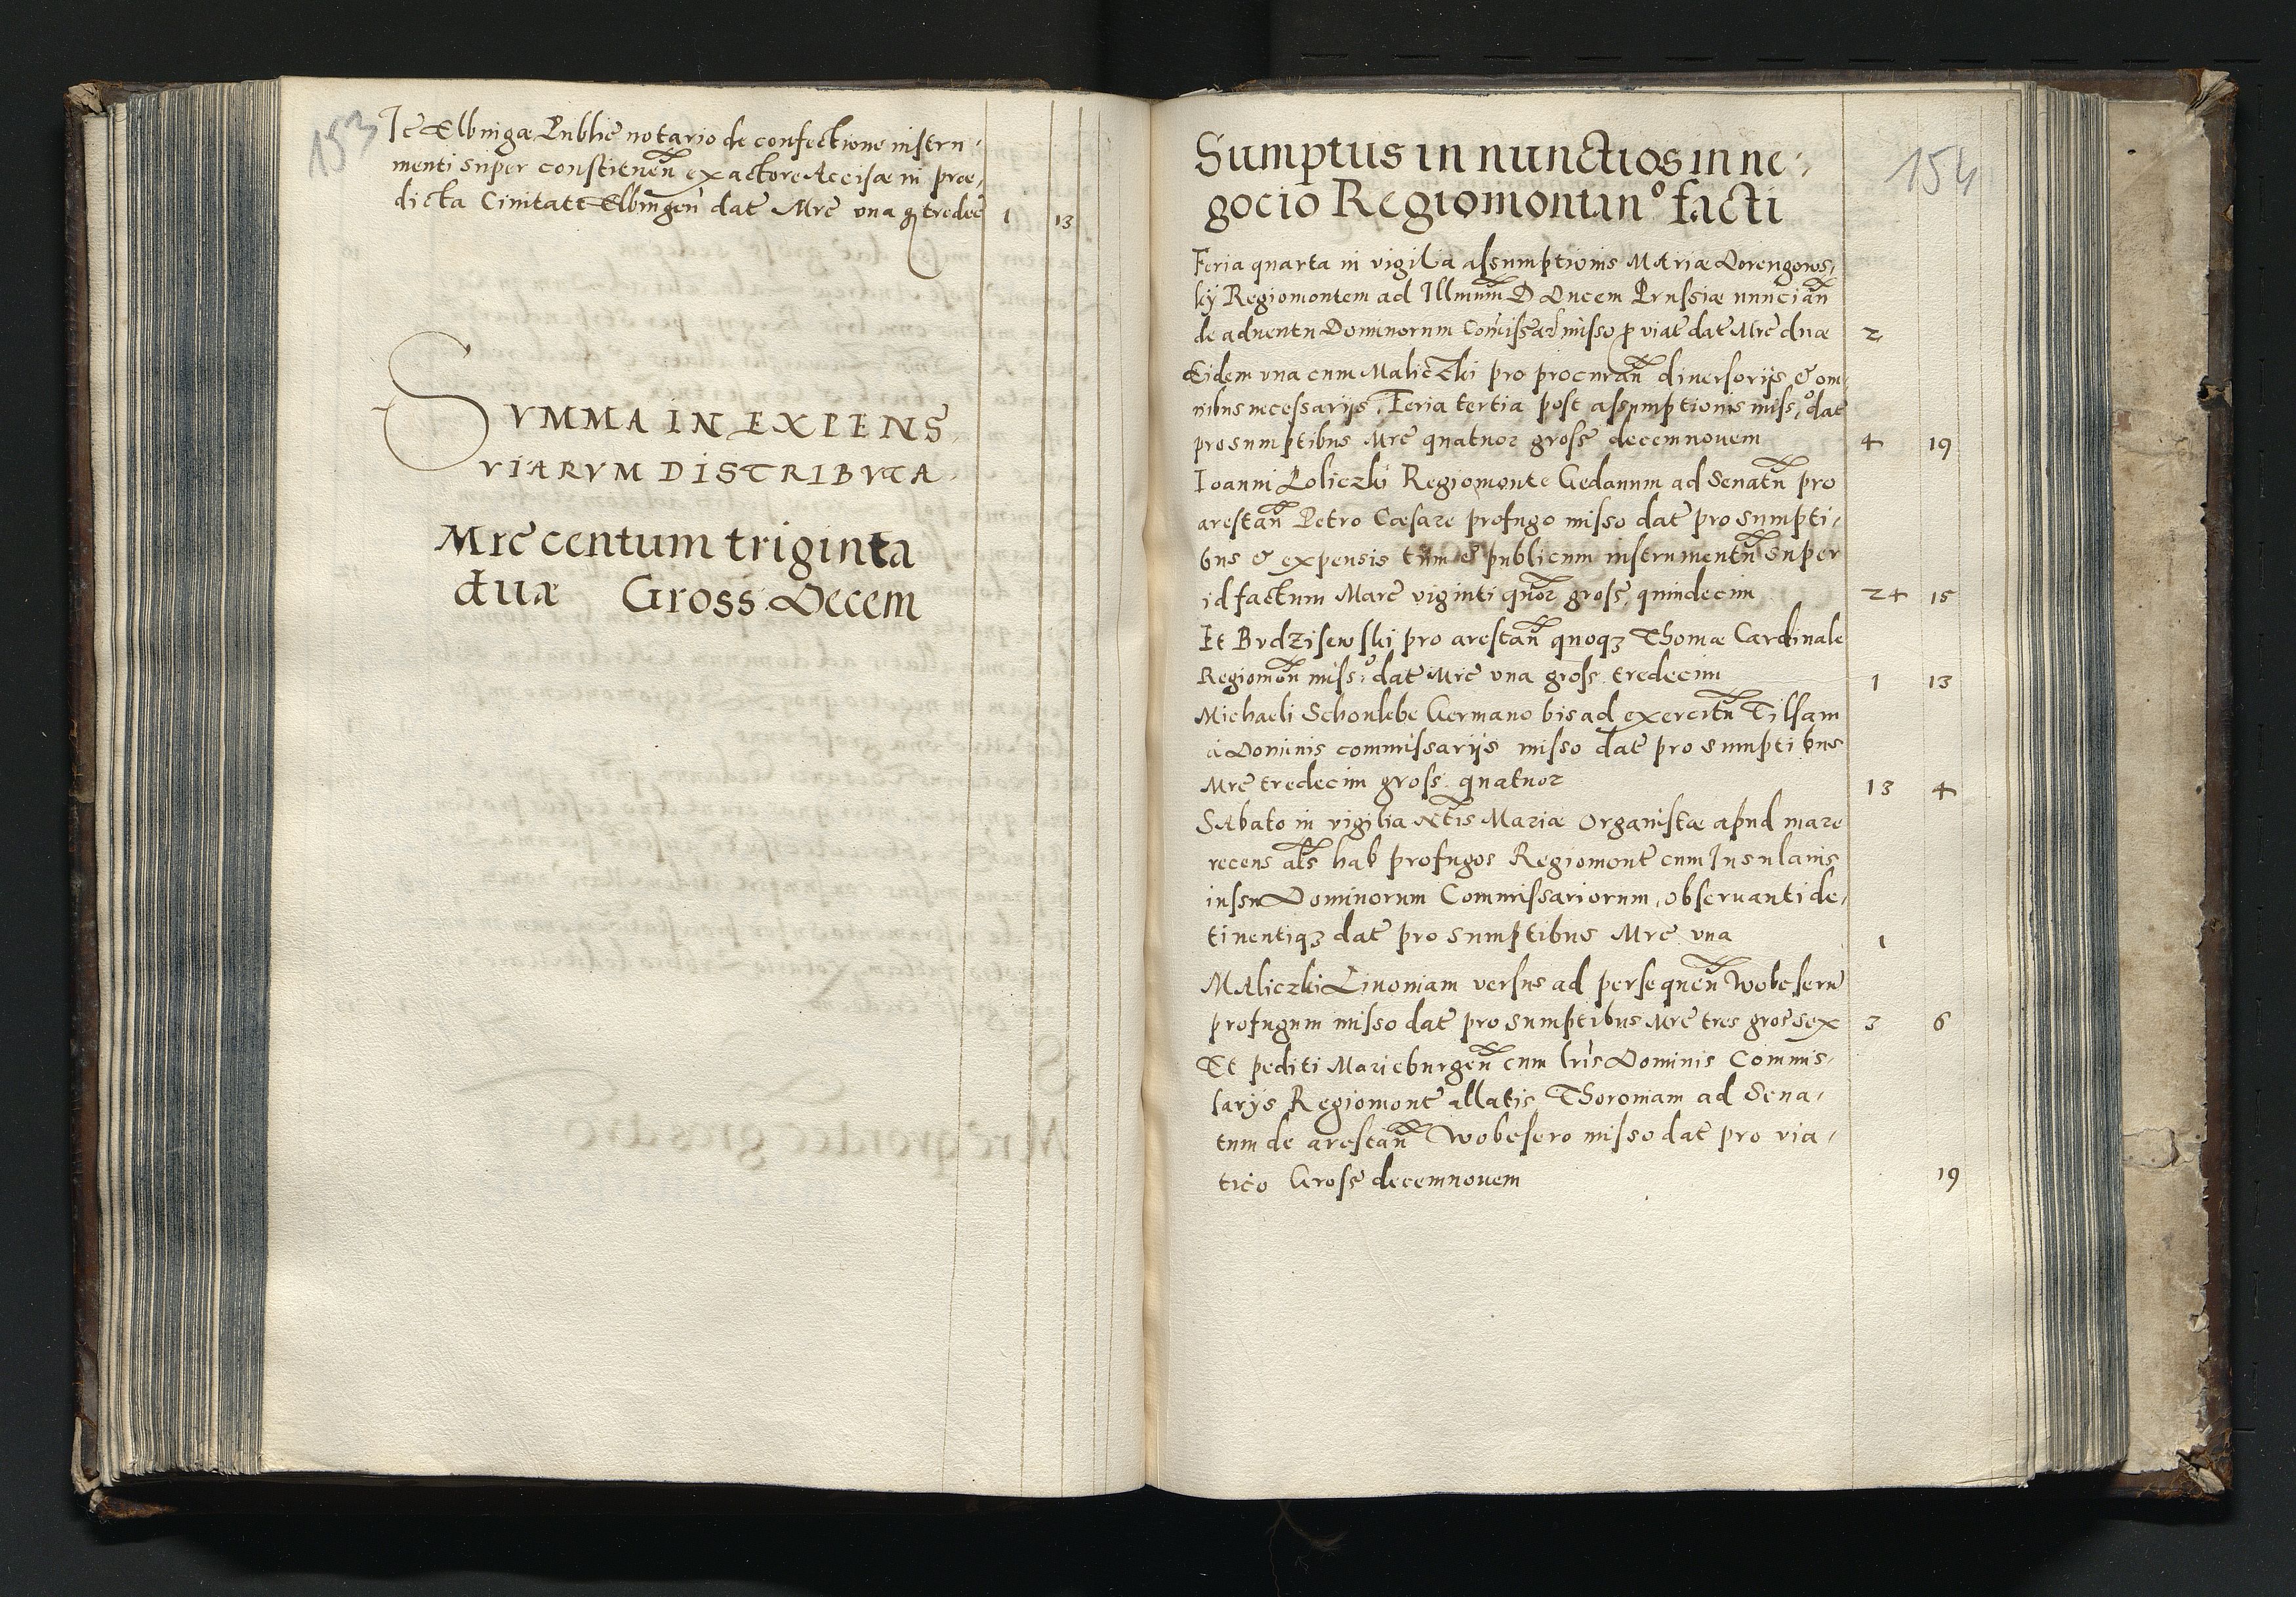 153
Ite Elbingæ Public notario de confectione instru-
menti super constituen exactore Accisæ in præ-
dicta Civitate Elbingen dat Mrc una g tredec 1 13
SVMMA IN EXPENS
VIARVM DISTRIBVTA
Mrc centum triginta
duæ Gross Decem
154
Sumptus in nunctios in ne-
gocio Regiomontano facti
Feria quarta in vigilia assumptionis Mariæ Dorengows-
ky Regiomontem ad Illmum D Ducem Prussiæ nuncian
de adventu Dominorum Comissar misso p viat dat Mrc duæ 2
Eidem una cum Maliczki pro procuran diversorijs & om-
nibus necessarijs, Feria tertia post assumptionis misso dat
pro sumptibus Mrc quatuor gross decemnovem 4 19
Ioanni Loliczki Regiomonte Gedanum ad Senatu pro
arestan Petro Cæsare profugo misso dat pro sumpti-
bus & expensis tum & publicum instrumentu super
id factum Marc viginti quor gross, quindecim 24 15
It Budzisewski pro arestan quoq Thomæ Cardinale
Regiomon misso dat Mrc una gross tredecim 1 13
Michaeli Schonlebe Germano bis ad exercitu Tilsam
à Dominis commissarijs misso dat pro sumptibus
Mrc tredecim gross. quatuor 13 4
Sabato in vigilia Ntis Mariæ Organistæ apud mare
recens als hab profugos Regiomont cum Insulanis
iussu Dominorum Commissariorum, observanti de-
tinentiq dat pro sumptibus Mrc una 1
Maliczki Livoniam versus ad persequen Wobeseru
profugum misso dat pro sumptibus Mrc tres gros sex 3 6
Et pediti Marieburgen cum lris Dominis Commis-
sarijs Regiomont allatis Thoroniam ad Sena-
tum de arestan Wobesero misso dat pro via-
tico Gross decemnovem 19